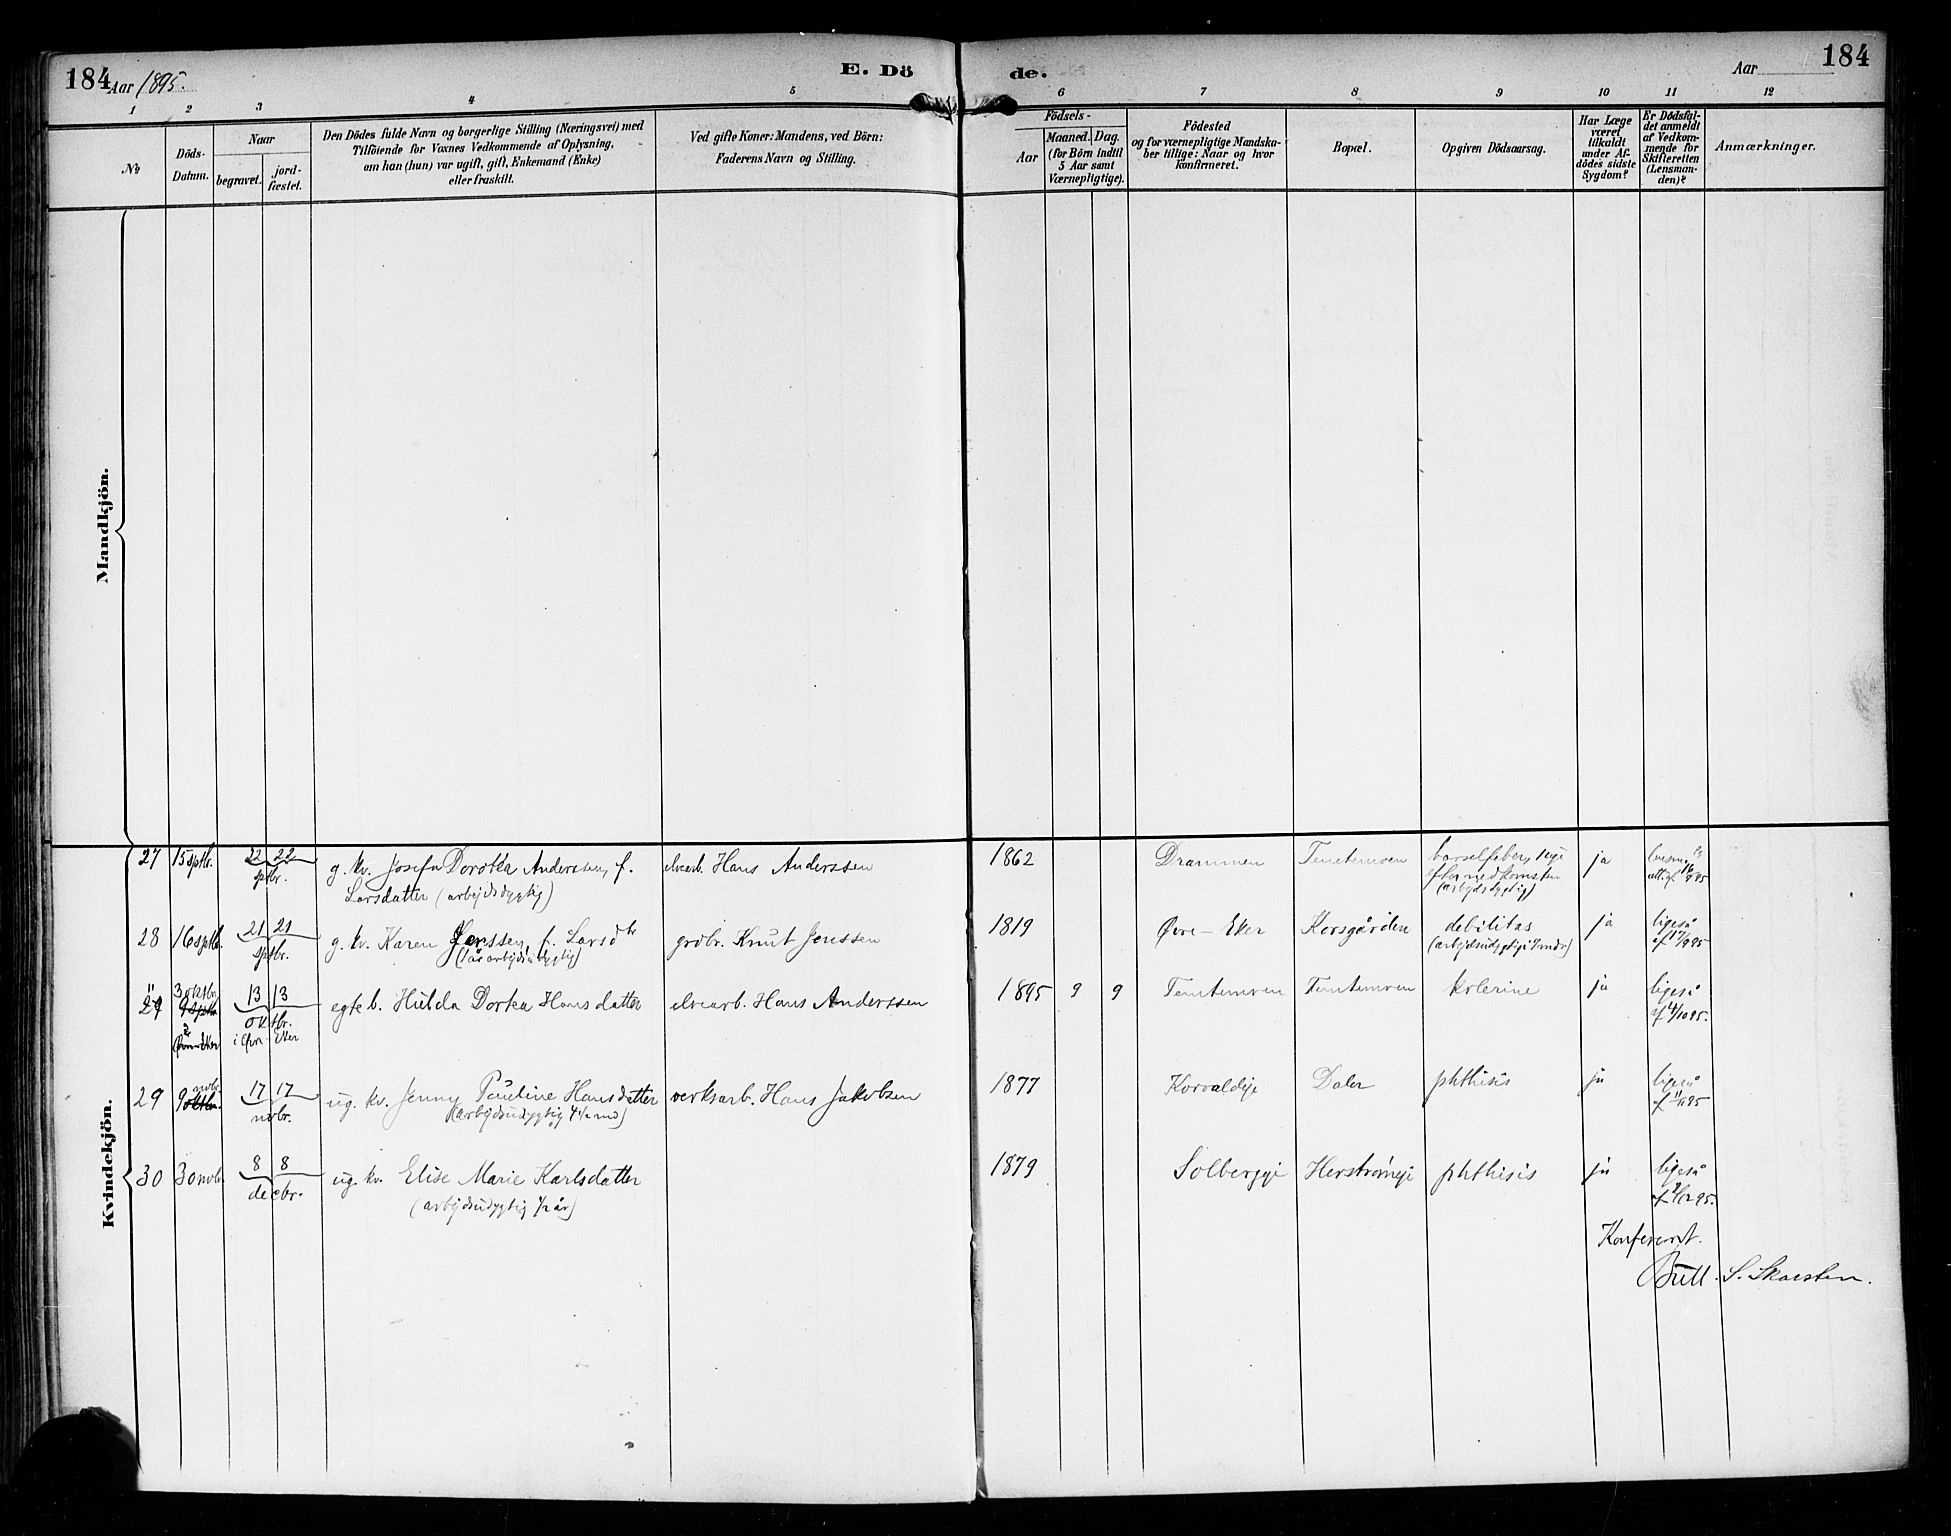 184 Aar 1895.
E. Dö
de.
Aar
184
1 2 3 4 5 6 7 8 9 10 11 12
№
Döds-
Datum.
Naar
begravet.
jord-
fæstet.
Den Dödes fulde Navn og borgerlige Stilling (Næringsvei) med
Tilföiende for Voxnes Vedkommende af Oplysning,
om han (hun) var ugift, gift, Enkemand (Enke)
eller fraskilt.
Ved gifte Koner: Mandens, ved Börn:
Faderens Navn og Stilling.
Födsels-
Aar
Maaned.
Dag.
(for Börn indtil
5 Aar samt
Værnepligtige).
Födested
og for værnepligtige Mandska-
ber tillige: Naar og hvor
konfirmeret.
Bopæl.
Opgiven Dödsaarsag.
Har Læge
været
tilkaldt
under Af-
dödes sidste
Sygdom?
Er Dödsfal-
det anmeldt
af Vedkom-
mende for
Skifteretten
(Lensman-
den)?
Anmærkninger.
Mandkjön.
Kvindekjön.
27 15 sptbr. 22 22 sptbr.
g. kv. Josefa Dorotea Anderssen, f.
Larsdatter (arbejdsdygtig)
elvearb. Hans Anderssen
1862 Drammen Temtemoen
barselfeber, 1 uge
efter nedkomsten
(arbejdsdygtig)
ja
28 16 sptb. 21 21 sptbr.
g. kv. Karen Jenssen, f. Larsdtr
grdbr. Knut Jenssen
1819 Øvre-Eker Korsgården debilitas
ja
ligeså
af 17/9 95
3 oktbr. 13 13 oktbr.
i Øvre Eker
egte b. Hulda Dorka Hansdatter elvearb. Hans Anderssen
1895 9 9 Temtemoen Temtemoen kolerine ja
ligeså
af 4/10 95.
29 9 novbr. 17 17 novbr.
ug. kv. Jenny Pauline Hansdatter verksarb. Hans Jakobsen
(arbejdsudygtig 4 1/2 md)
1877 Korvaldeje Daler phthisis ja
ligeså
af 11/11 95
30 30 novb. 8 8 decbr.
ug. kv. Elise Marie Karlsdatter
(arbejdsudygtig 1/2 år)
1879 Solbergeje Herstrømeje phthisis ja
ligeså
Konfereret.
Bull. S. Skarsten.